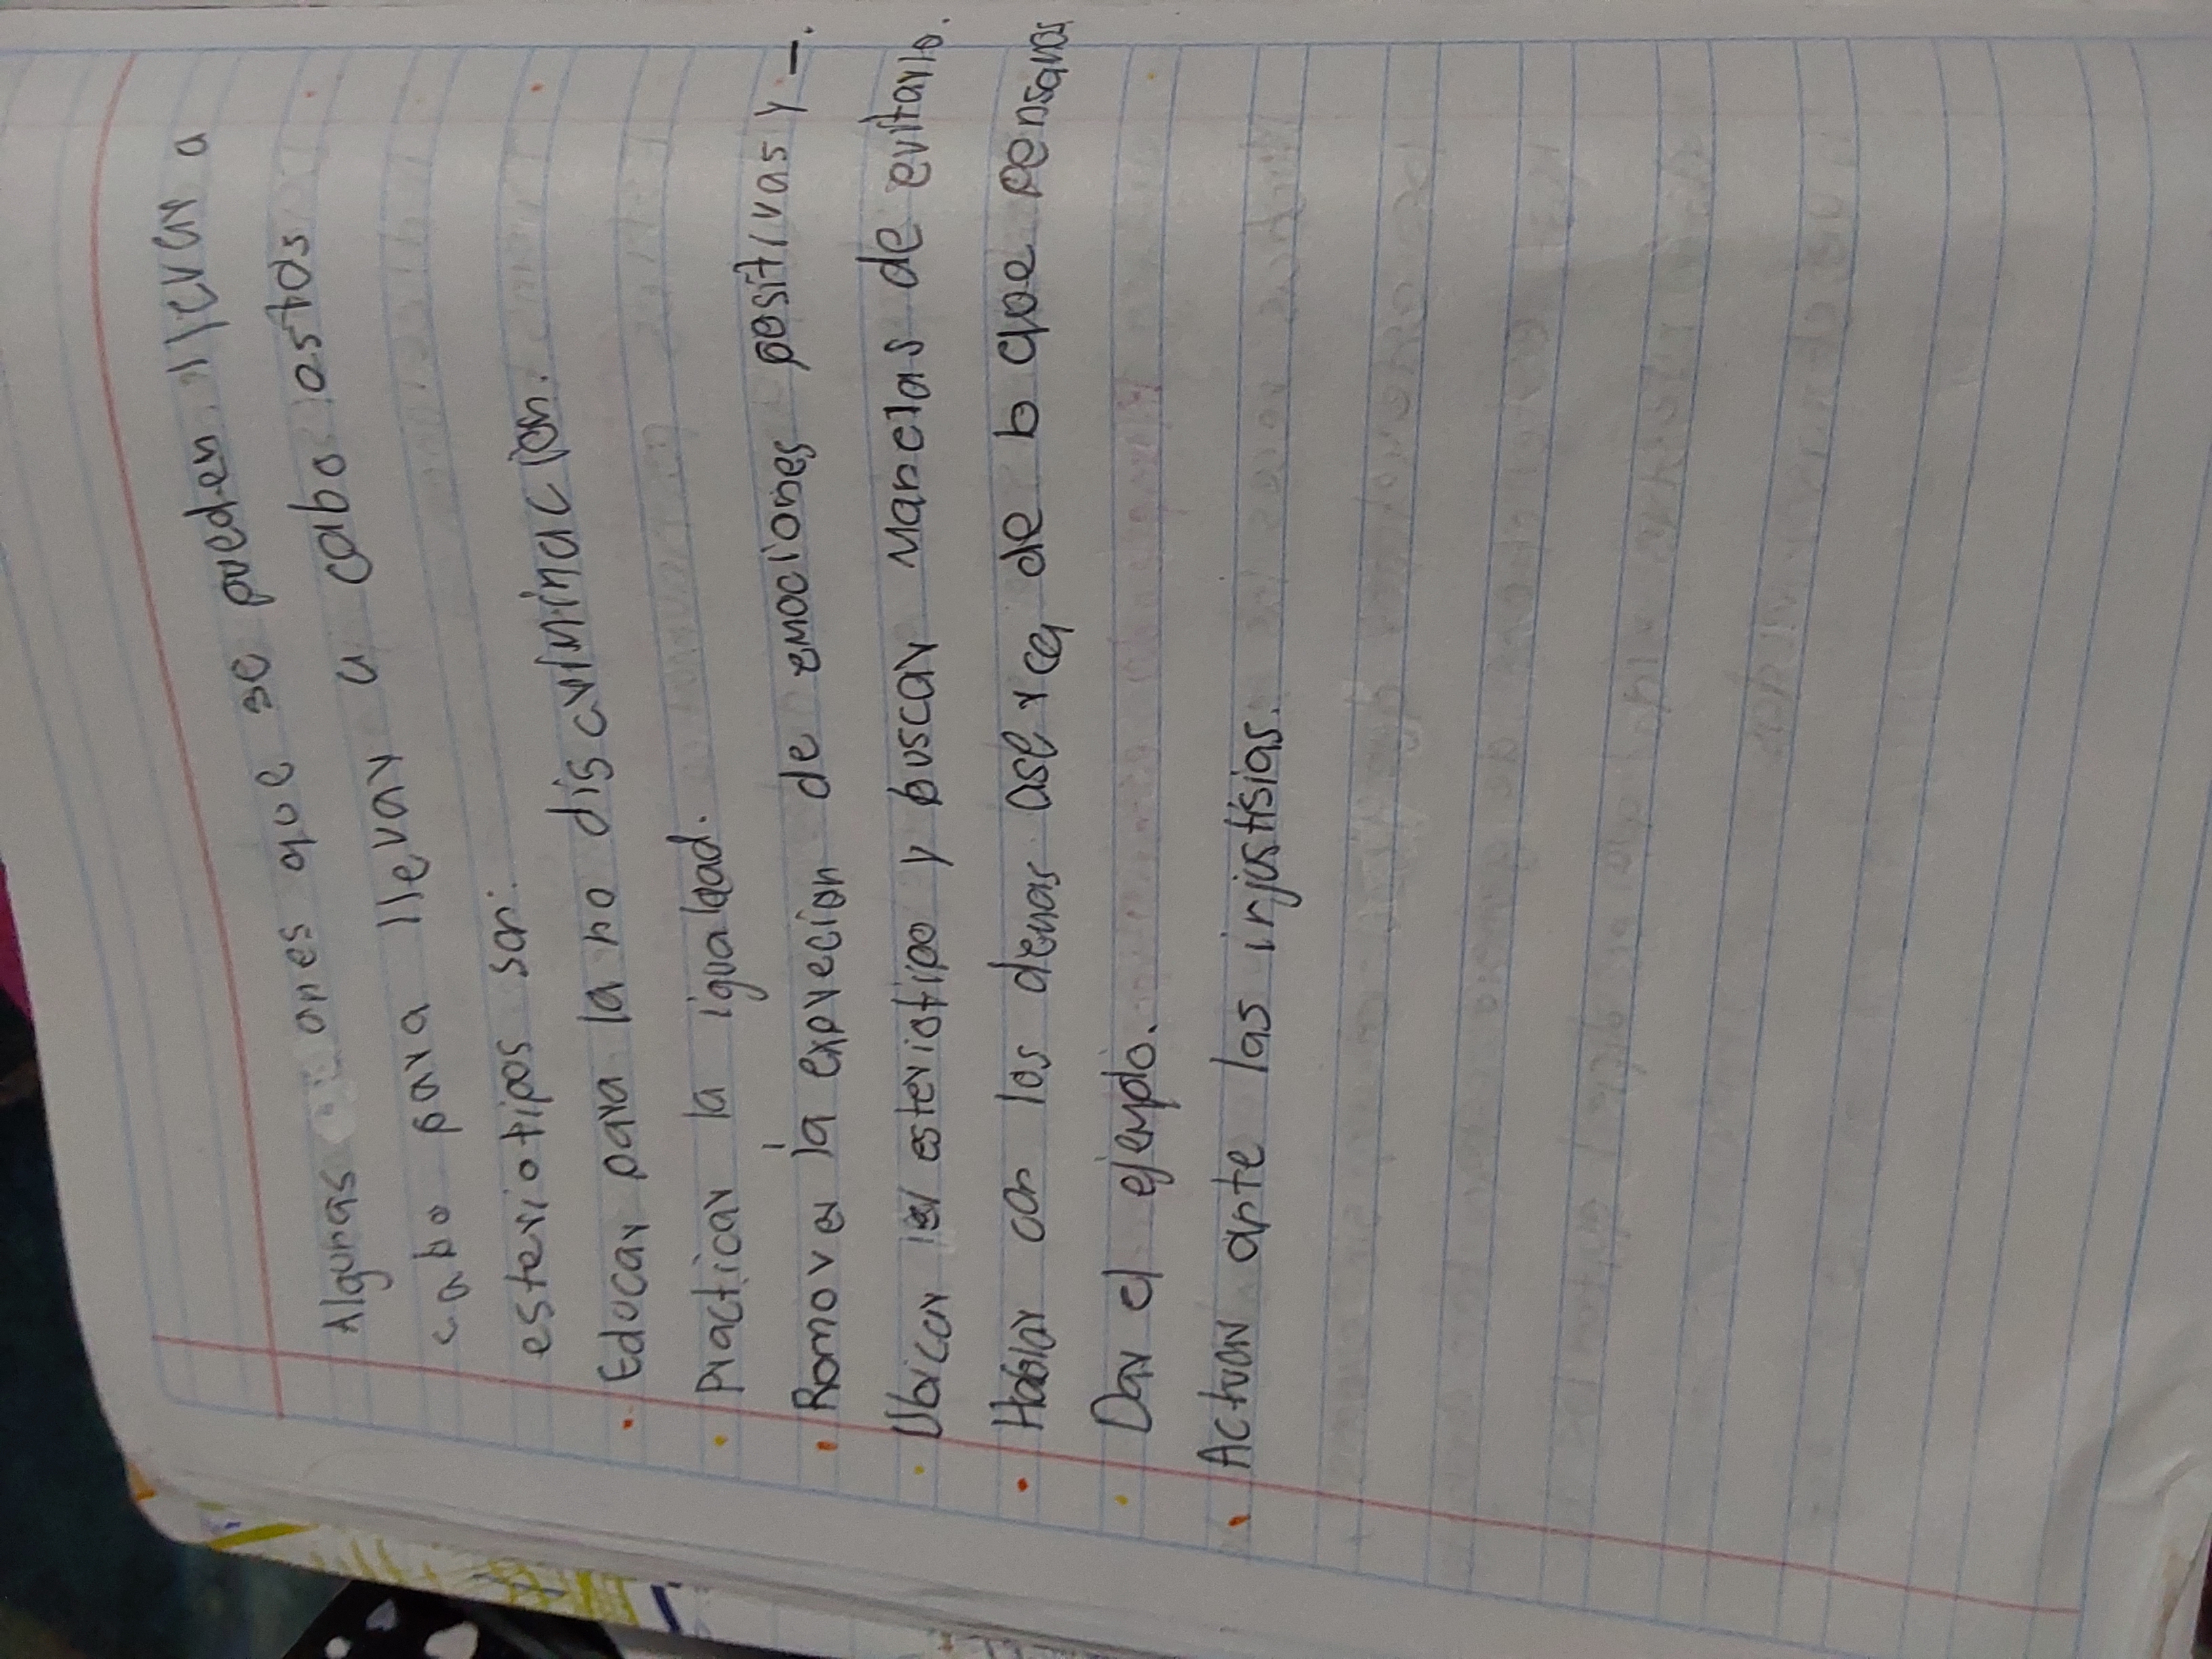 Algunas acciones que se pueden llevar a
cabo para llevar a cabo estos
esteriotipos son:
• Educar para la no discriminación.
• Practicar la igualdad.
• Romover la expreción de emociones positivas y –.
• Ubicar el esteriotipo y buscar maneras de evitarlo.
• Hablar con los demas aserca de lo que pensamos
• Dar el ejemplo.
• Actuar ante las injustisias.